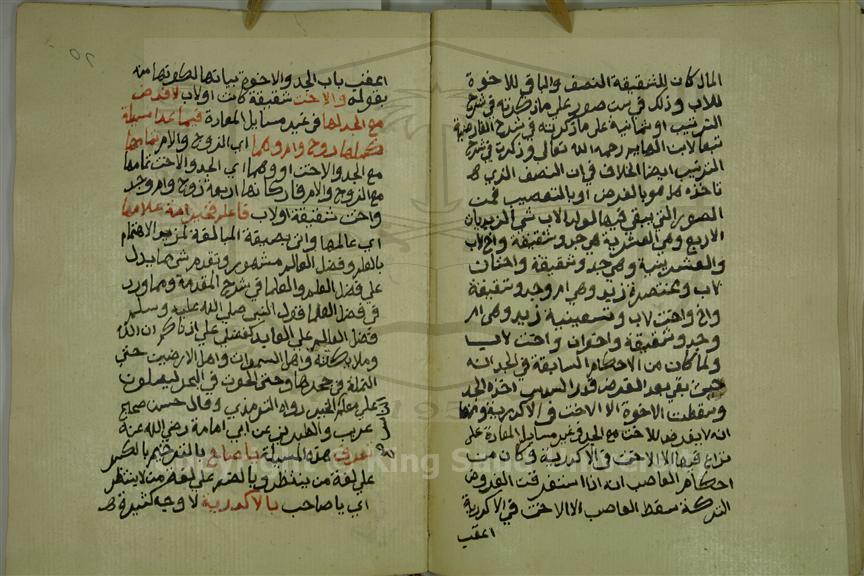 المال كان للشقيقة النصف والباقي للاخوة
للاب وذلك في ست صور علي ما ذكرته في شرح
الترتيب او ثمانية علي ما ذكرته في شرح الفارضية
تبعا لابن الهايم رحمه الله تعالي وذكرت في شرح
الترتيب ايضا الخلاف في ان النصف الذي
تاخذه هل هو بالفرض او بالتعصيب فمن
الصور التي يبقي فيها لولد الاب شي الزيديات
الاربع وهي العشرية هي جد وشقيقة واخ لاب
والعشرينية وهي جد وشقيقة واختان
لاب ومختصرة زيد وهي ام وجد وشقيقة
واخ واخت لاب وتسعينية زيد وهي ام
وجد وشقيقة واخوان واخت لاب
ولما كان من الاحكام السابقة في الجد انه
حيث بقي بعد الفرض قدر السدس اخذه الجد
وسقطت الاخوة الا الاخت في الاكدرية ومنها
انه لا يفرض للاخت مع الجد في غير مسايل المعادة علي
نزاع فيها الا الاخت في الاكدرية وكان من
احكام العاصب انه اذا استغرقت الفروض
التركة سقط العاصب الا الاخت في الاكدرية
اعقب
اعقب باب الجد والاخوة ببيانها لطولها منه
بقوله والاخت شقيقة كانت او لاب لا فرض
مع الجد لها في غير مسايل المعادة فيما عدا مسيلة
كملها زوج وام وهما اي الزوج والام تمامها
مع الجد والاخت او وهما اي الجد والاخت تمامها
مع الزوج والام فاركانها اربعة زوج وام وجد
واخت شقيقة او لاب فاعلم فخير امة علامها
اي عالمها واتي بصيغة المبالغة لمزيد الاهتمام
بالعلم وفضل العالم مشهور وتقدم شي مما يدل
علي فضل العلم والعلما في شرح المقدمة ومما ورد
في فضل العلما قول النبي صلي الله عليه وسلم
فضل العالم علي العابد كفضلي علي ادناكم ان الله
وملايكته واهل السموات واهل الارضين حتي
النملة في جحرها وحتي الحوت في البحر ليصلون
علي معلم الخير رواه الترمذي وقال حسن صحيح
غريب والطبراني عن ابي امامة رضي الله عنه
تعرف هذه المسيلة يا صاح بالترخيم بالكسر
علي لغة من ينتظر وبالضم علي لغة من لا ينتظر
اي يا صاحب بالاكدرية لاوجه كثيرة